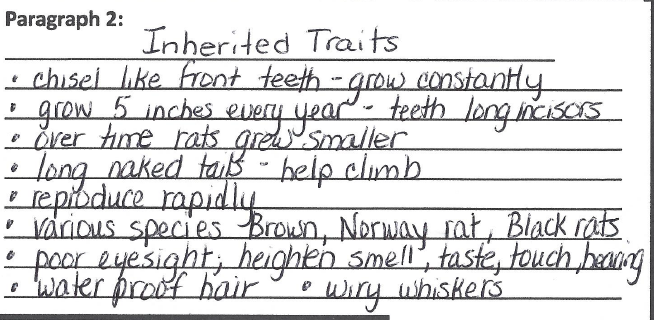 Paragraph 2:
Inherited Traits
• chisel like front teeth - grow constantly
• grow 5 inches every year - teeth long incisors
• over time rats grew smaller
• long naked tails - help climb
• reproduce rapidly
• various species Brown, Norway rat, Black rats
• poor eyesight; heighten smell, taste, touch, hearing
• water proof hair • wiry whiskers